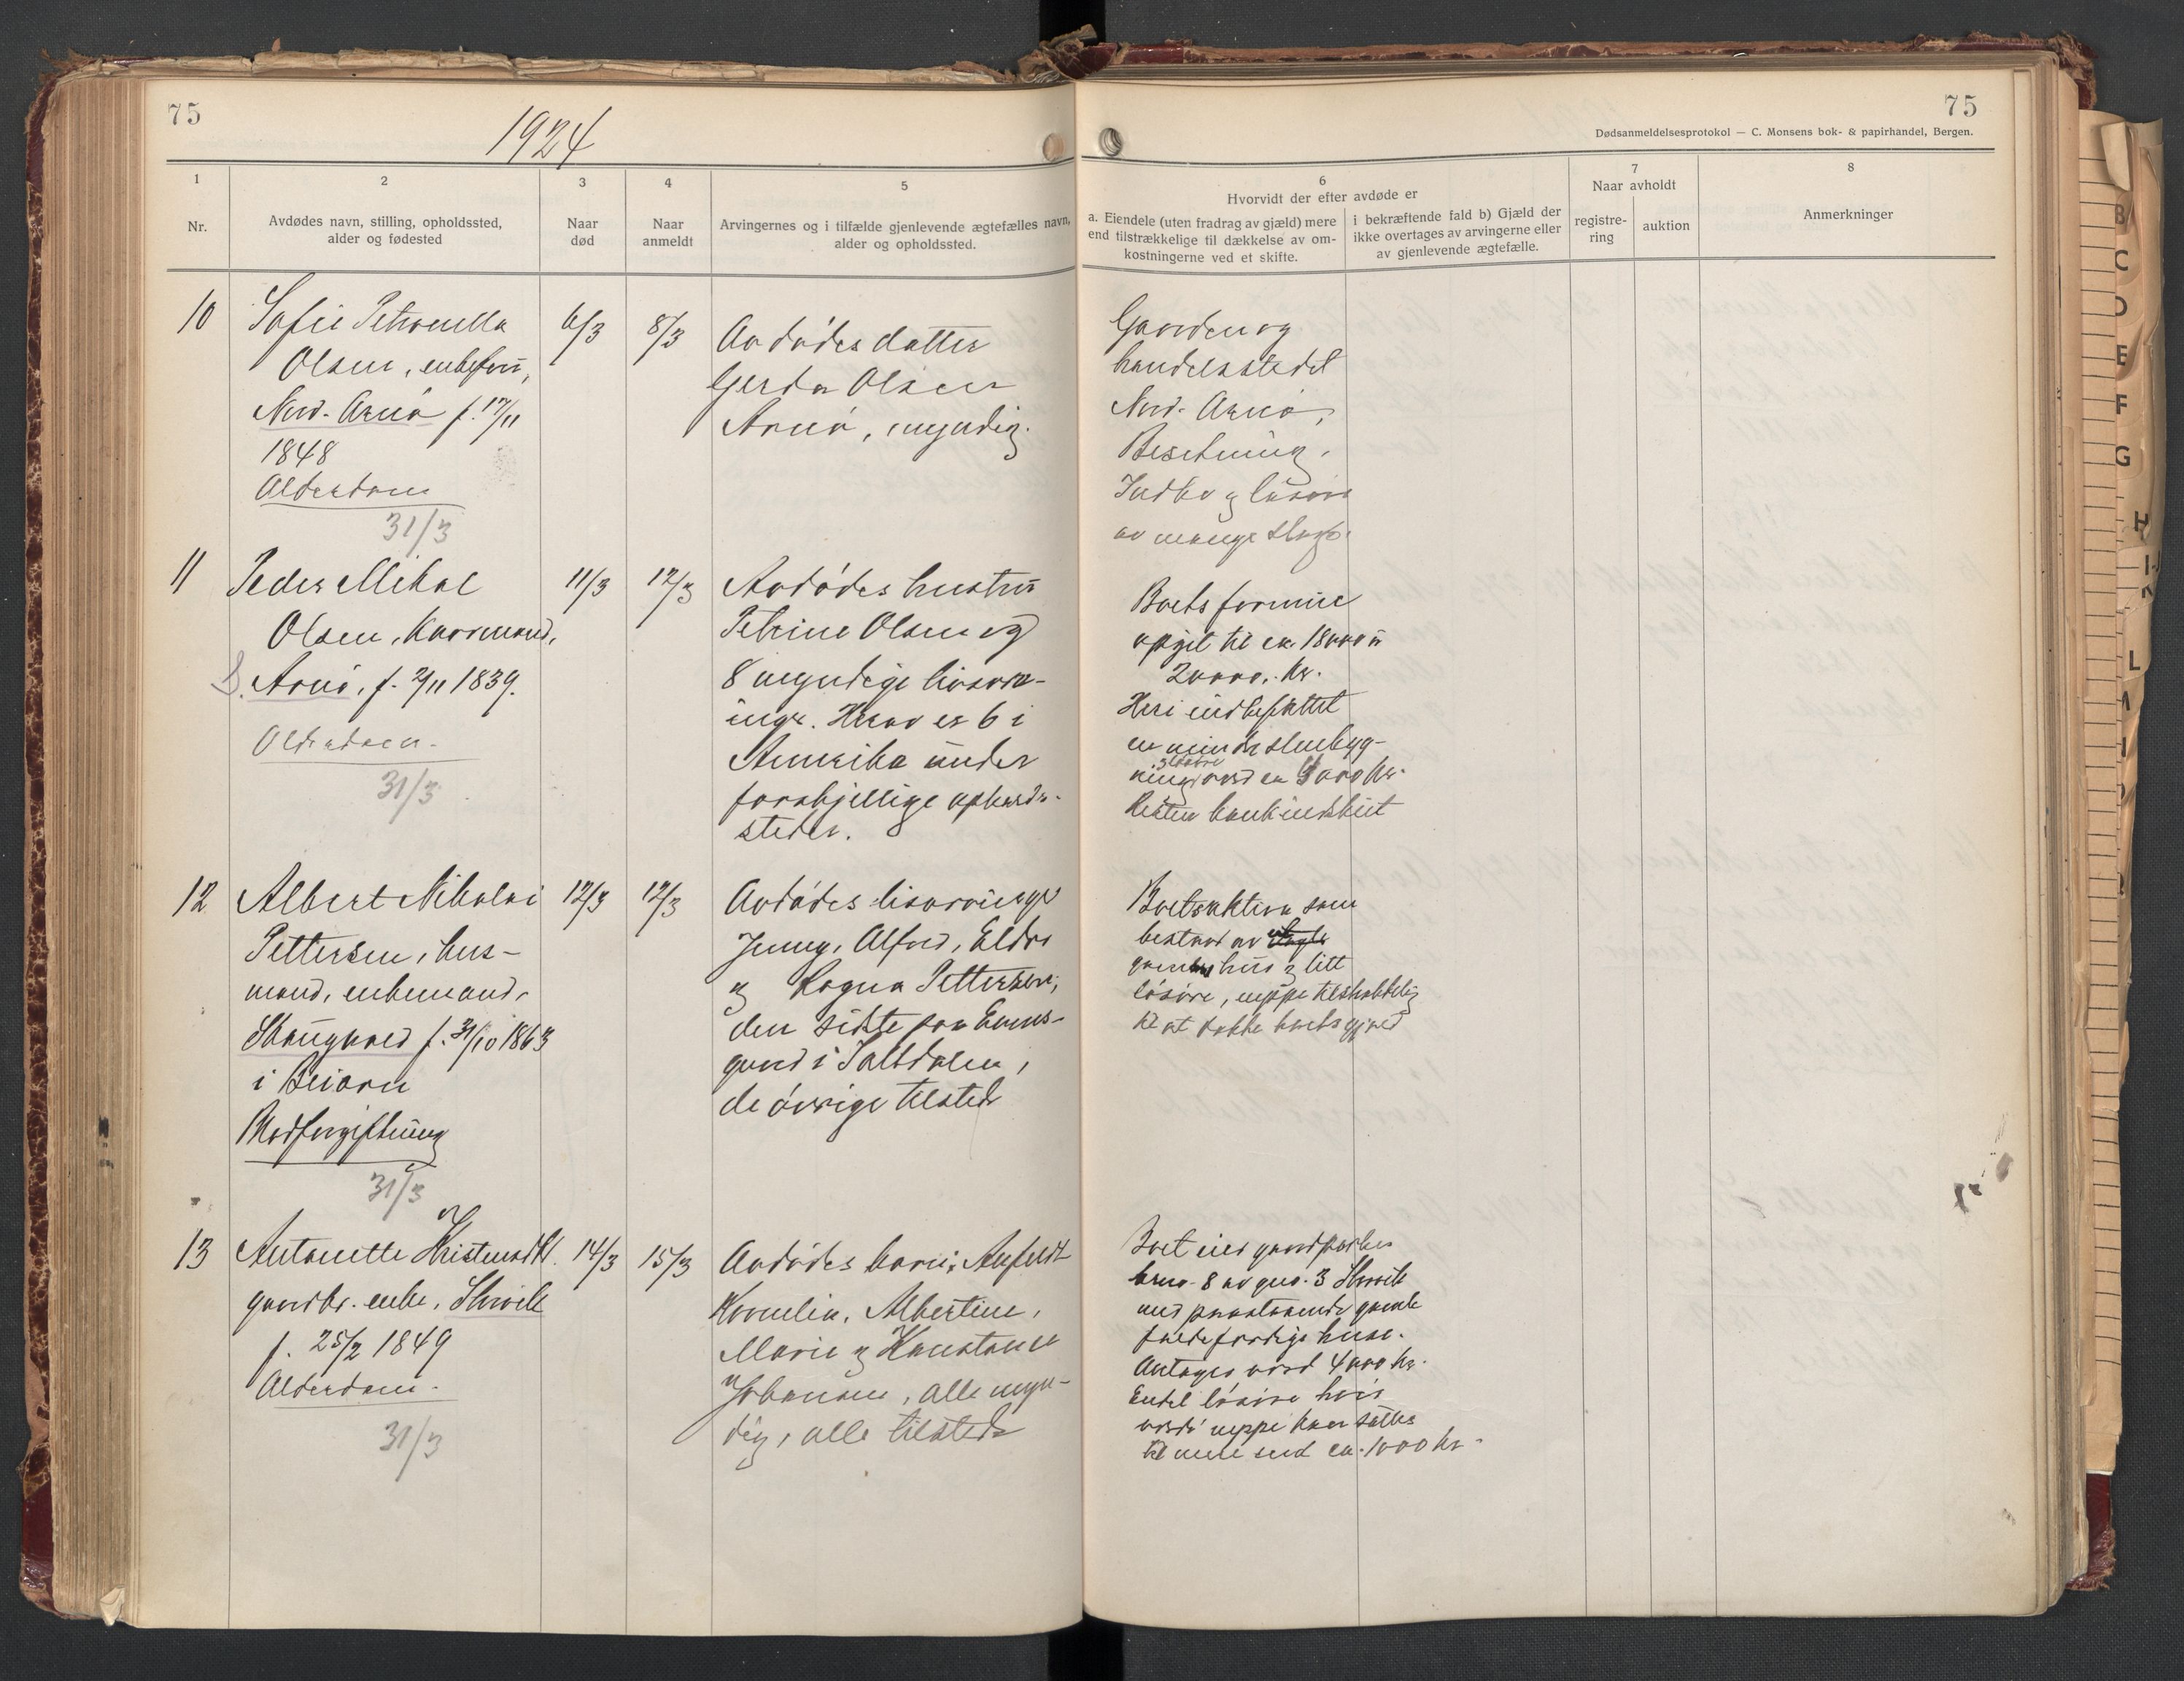 75
1924
75
Dødsanmeldelsesprotokol — C. Monsens bok- & papirhandel, Bergen.
1
2
3
4
5
6
7
8
Nr.
Avdødes navn, stilling, opholdssted,
alder og fødested
Naar
død
Naar
anmeldt
Arvingernes og i tilfælde gjenlevende ægtefælles navn,
alder og opholdssted.
Hvorvidt der efter avdøde er
a. Eiendele (uten fradrag av gjæld) mere
end tilstrækkelige til dækkelse av om-
kostningerne ved et skifte.
i bekræftende fald b) Gjæld der
ikke overtages av arvingerne eller
av gjenlevende ægtefælle.
Naar avholdt
registre-
ring
auktion
Anmerkninger
10
Sofie Petronella
Olsen, enkefru,
Nord-Arnö f. 17/11
1848
Alderdom
31/3
6/3
8/3
Avdödes datter
Gerda Olsen
Arnö, myndig.
Gaarden og
handelsstedet
Nord-Arnö,
Besetning,
Indbo og lösöre
av mange slags.
11
Peder Mikal
Olsen, kaarmand,
S. Arnö, f. 2/11 1839.
Alderdom.
31/3
11/3
12/3
Avdödes hustru
Petrine Olsen og
8 myndige livsarv-
inger. Herav er 6 i
Amerika under
forskjellige opholds-
steder.
Boets formue
opgit til ca. 18000 à
20000.- kr.
Heri indbefattet
en mindre stuebyg-
ning, lösöre værd ca 4000 kr.
Resten bankindskud
12
Albert Nikolai
Pettersen, hus-
mand, enkemand,
Skaugvold f. 31/10 1863
i Beiarn
Blodforgiftning
31/3
12/3
12/3
Avdödes livsarvinger
Jenny, Alfred,
og Ragna Pettersen,
den sidste paa
gaard i Saltdalen,
de övrige tilsted
Boets aktiva som
bestaar av
gamle hus og litt
lösöre, neppe tilstrækkelig
til at dække boets gjæld
13
Antonette Kristensdtr.
gaardbr. enke, Storvik
f. 25/2 1849
Alderdom.
31/3
14/3
15/3
Avdödes barn: Anfeldt
Kornelia, Albertine,
Marie og Konstanse
Johansen, alle myn-
dig, alle tilsted
Boet eier gaardparten
brno. 8 av gno. 3 Storvik
med paastaaende gamle
faldefærdige huse.
Antages værd 4000 kr.
Endel lösöre hvis
værdi neppe kan sættes
til mere end ca. 1000 kr.
B
C
D
E
F
G
H
L